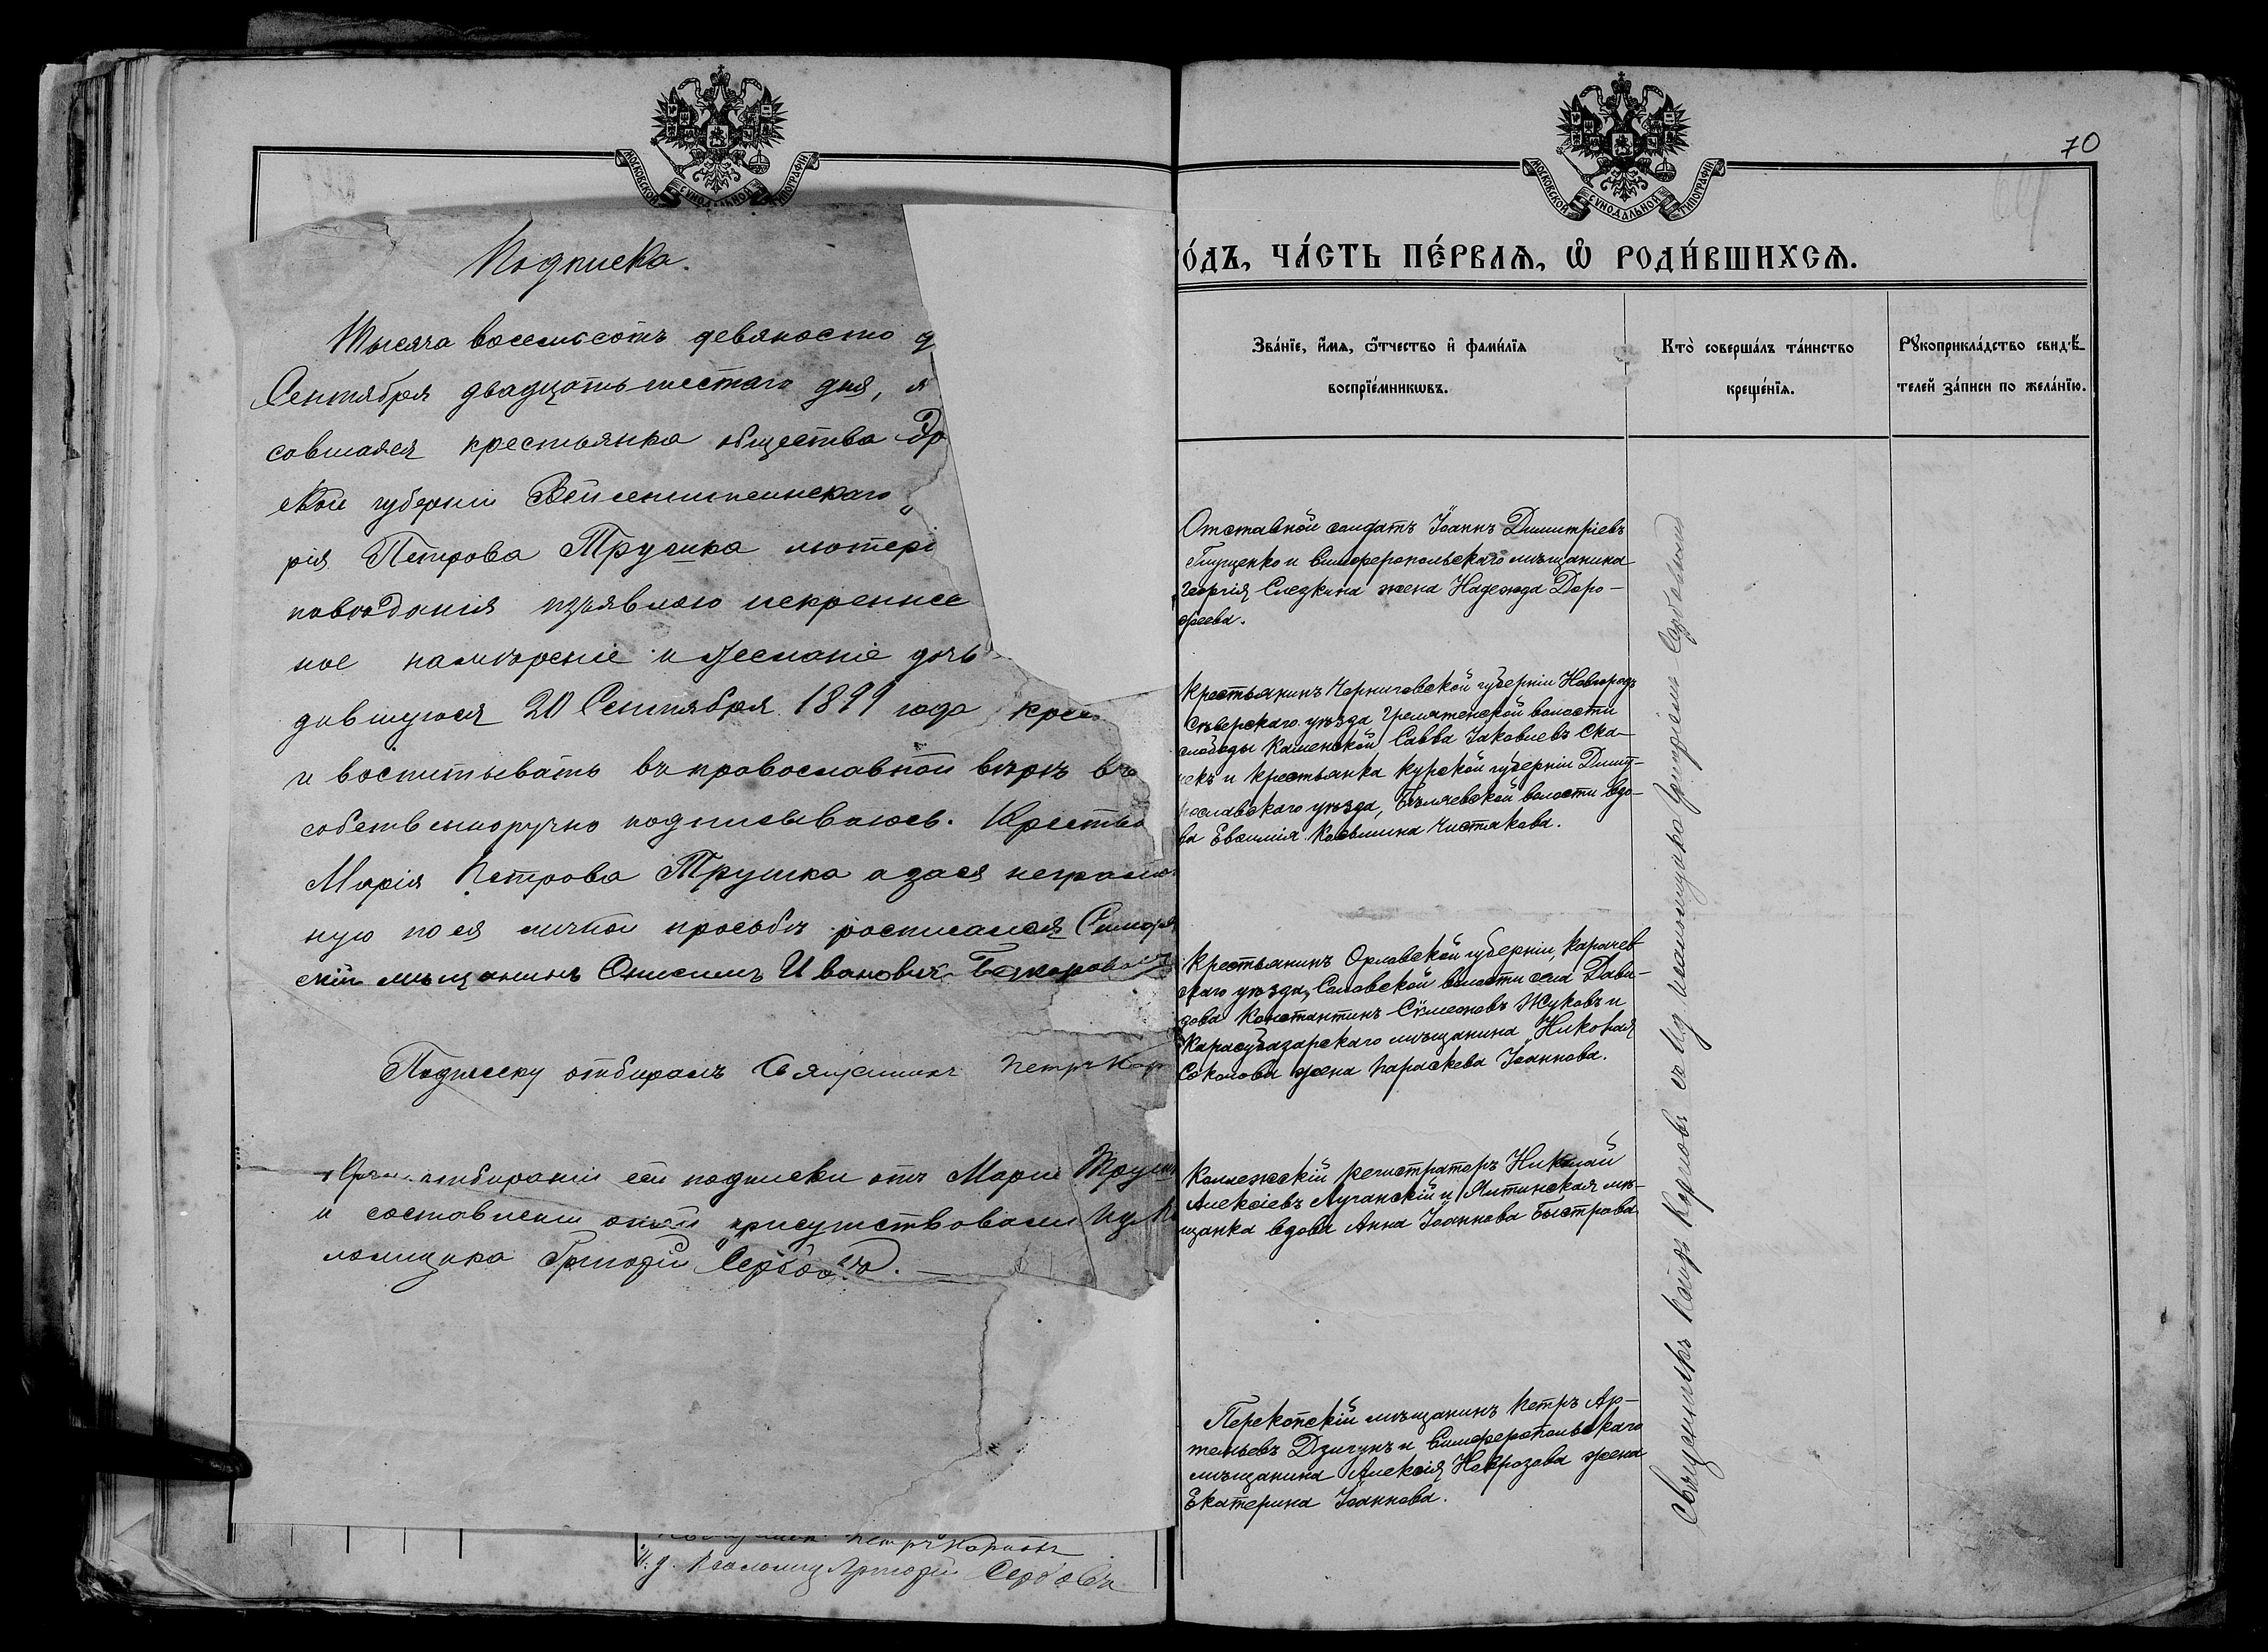 МОСКОВСКОЙ СѴНОДАЛЬНОЙ ТИПОГРАФІИ
Подписка.
Тысяча восемьсотъ девяносто д
Сентября двадцать шестаго дня, я
савшаяся крестьянка общества
ской губерніи Вейсенштеинскаго
рія Петрова Трушка лютера
изъявляю искреннее
ное намѣреніе и желаніе дочь
дившуюся 20 Сентября 1899 года крес
и воспитывать въ православной вѣрѣ въ
собственноручно подписываюсь. Крестья
Марія Петрова Трушка а за ея неграмот
ную по ея личной просьбѣ росписался Симфер
скій мѣщанинъ Онисимъ Ивановичъ
Подписку отбиралъ Священникъ Петръ Кар
При отбираніи сей подписки отъ Маріи Труш
и составленіи оной присутствовали
ломщика Григорій Сербовъ.
Петръ Карповъ
И. д. Псаломщ Григорій Сербовъ
МОСКОВСКОЙ СѴНОДАЛЬНОЙ ТИПОГРАФІИ
70
69
о́дъ, ча́сть пе́рваѧ, ѡ҆ роди́вшихсѧ.
Зва́нїе, и҆́мѧ, ѻ҆́тчество и҆ фами́лїѧ
воспрїе́мникѡвъ.
Кто̀ соверша́лъ та́инство
креще́нїѧ.
Рꙋкоприкла́дство свидѣ́-
телей за́писи по жела́нїю.
Отставной солдатъ Іоаннъ Димитріевъ
Глущенко и Симферопольскаго мѣщанина
Георгія Слезкина жена Надежда Доро-
феева.
Крестьянинъ Черниговской губерніи Новгородъ
Сѣверскаго уѣзда Гремяченской волости
слободы Каменской Савва Іаковлевъ Ска-
чекъ и крестьянка Курской губерніи Дмит-
рославскаго уѣзда, Бѣляевской волости вдо-
ва Евфимія Касьмина Чистякова.
Крестьянинъ Орловской губерніи, Карачев
скаго уѣзда, Саловской волости села Дави-
дова Константинъ Сѵмеоновъ Жуковъ и
Карасубазарскаго мѣщанина Николая
Соколова жена Параскева Іоаннова.
Коллежскій регистраторъ Николай
Алексіевъ Луганскій и Ялтинская мѣ-
щанка вдова Анна Іоаннова Быстрова
Перекопскій мѣщанинъ Петръ Ар-
темьевъ Дзигунъ и Симферопольскаго
мѣщанина Алексія Неврозова жена
Екатерина Іоаннова.
Священникъ Петръ Карповъ съ и. д. псаломщика Григоріемъ Сербовымъ